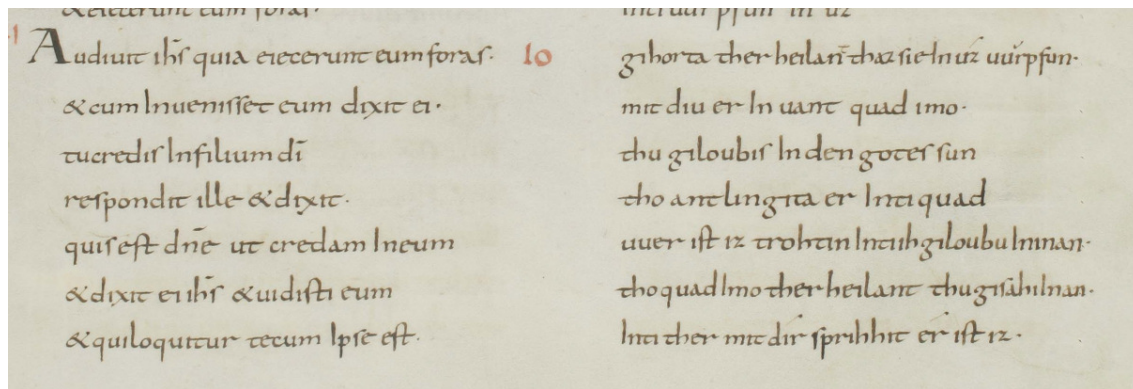 & eiecerunt eum foras.
Audiuit ihs̄ quia eiecerunt eum foras.
& cum Inuenisset eum dixit ei.
tu credis In filium dī
respondit ille & dixit.
quis est dn̄e ut credam In eum
& dixit ei ihs̄ & uidisti eum
& qui loquitur tecum Ipse est.
Io
Inti vvrpfun In uz
gihorta ther heilan̄t thaz sie In úz vvúrpfun.
mit diu er In uant quad imo.
thu giloubis In den gotes sun
tho antlingita er Inti quad
uuer ist iz trohtin Inti ih giloubu In inan.
tho quad Imo ther heilant thu gisáhi Inan.
Inti ther mit dír sprihhit ér ist iz.